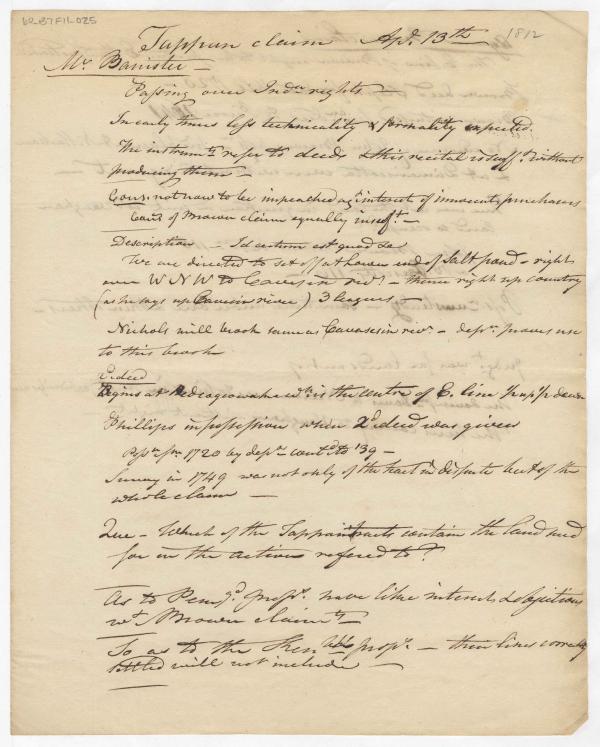 62-B7F11-025
Tappan claim Apl. 13th 1812
Mr. Banister —
Passing over Indn rights —
In early times less technicality & formality expected.
The instrumts refer to deeds & this recital is sufft without
producing them —
Cons. not now to be impeached agt interest of innocent purchasers
Cons of Brown claim equally insufft. —
Description — Id certum est quod &c
We are directed to set off at lower end of Salt pond — right
over W N W to Cavesin rivr — thence right up country
(as he says up Cavesin river) 3 leagues —
Nichols mill brook same as Cavasesin rivr. — depn. proves use
to this brook
2 deed
Begins at wh is the centre of E. line
Phillips in possession when 2d deed was given
1720 by depn contd to '39 —
Survey in 1749 was not only of the tract in dispute but of the
whole claim —
Que — Which of the Tappan tracts contain the land sued
for in the actions refered to?
As to Pemqd propr. have like interests & objections
wt Brown claimts —
So as to the Kenbk propr. — their lines correctly
settled will not include —